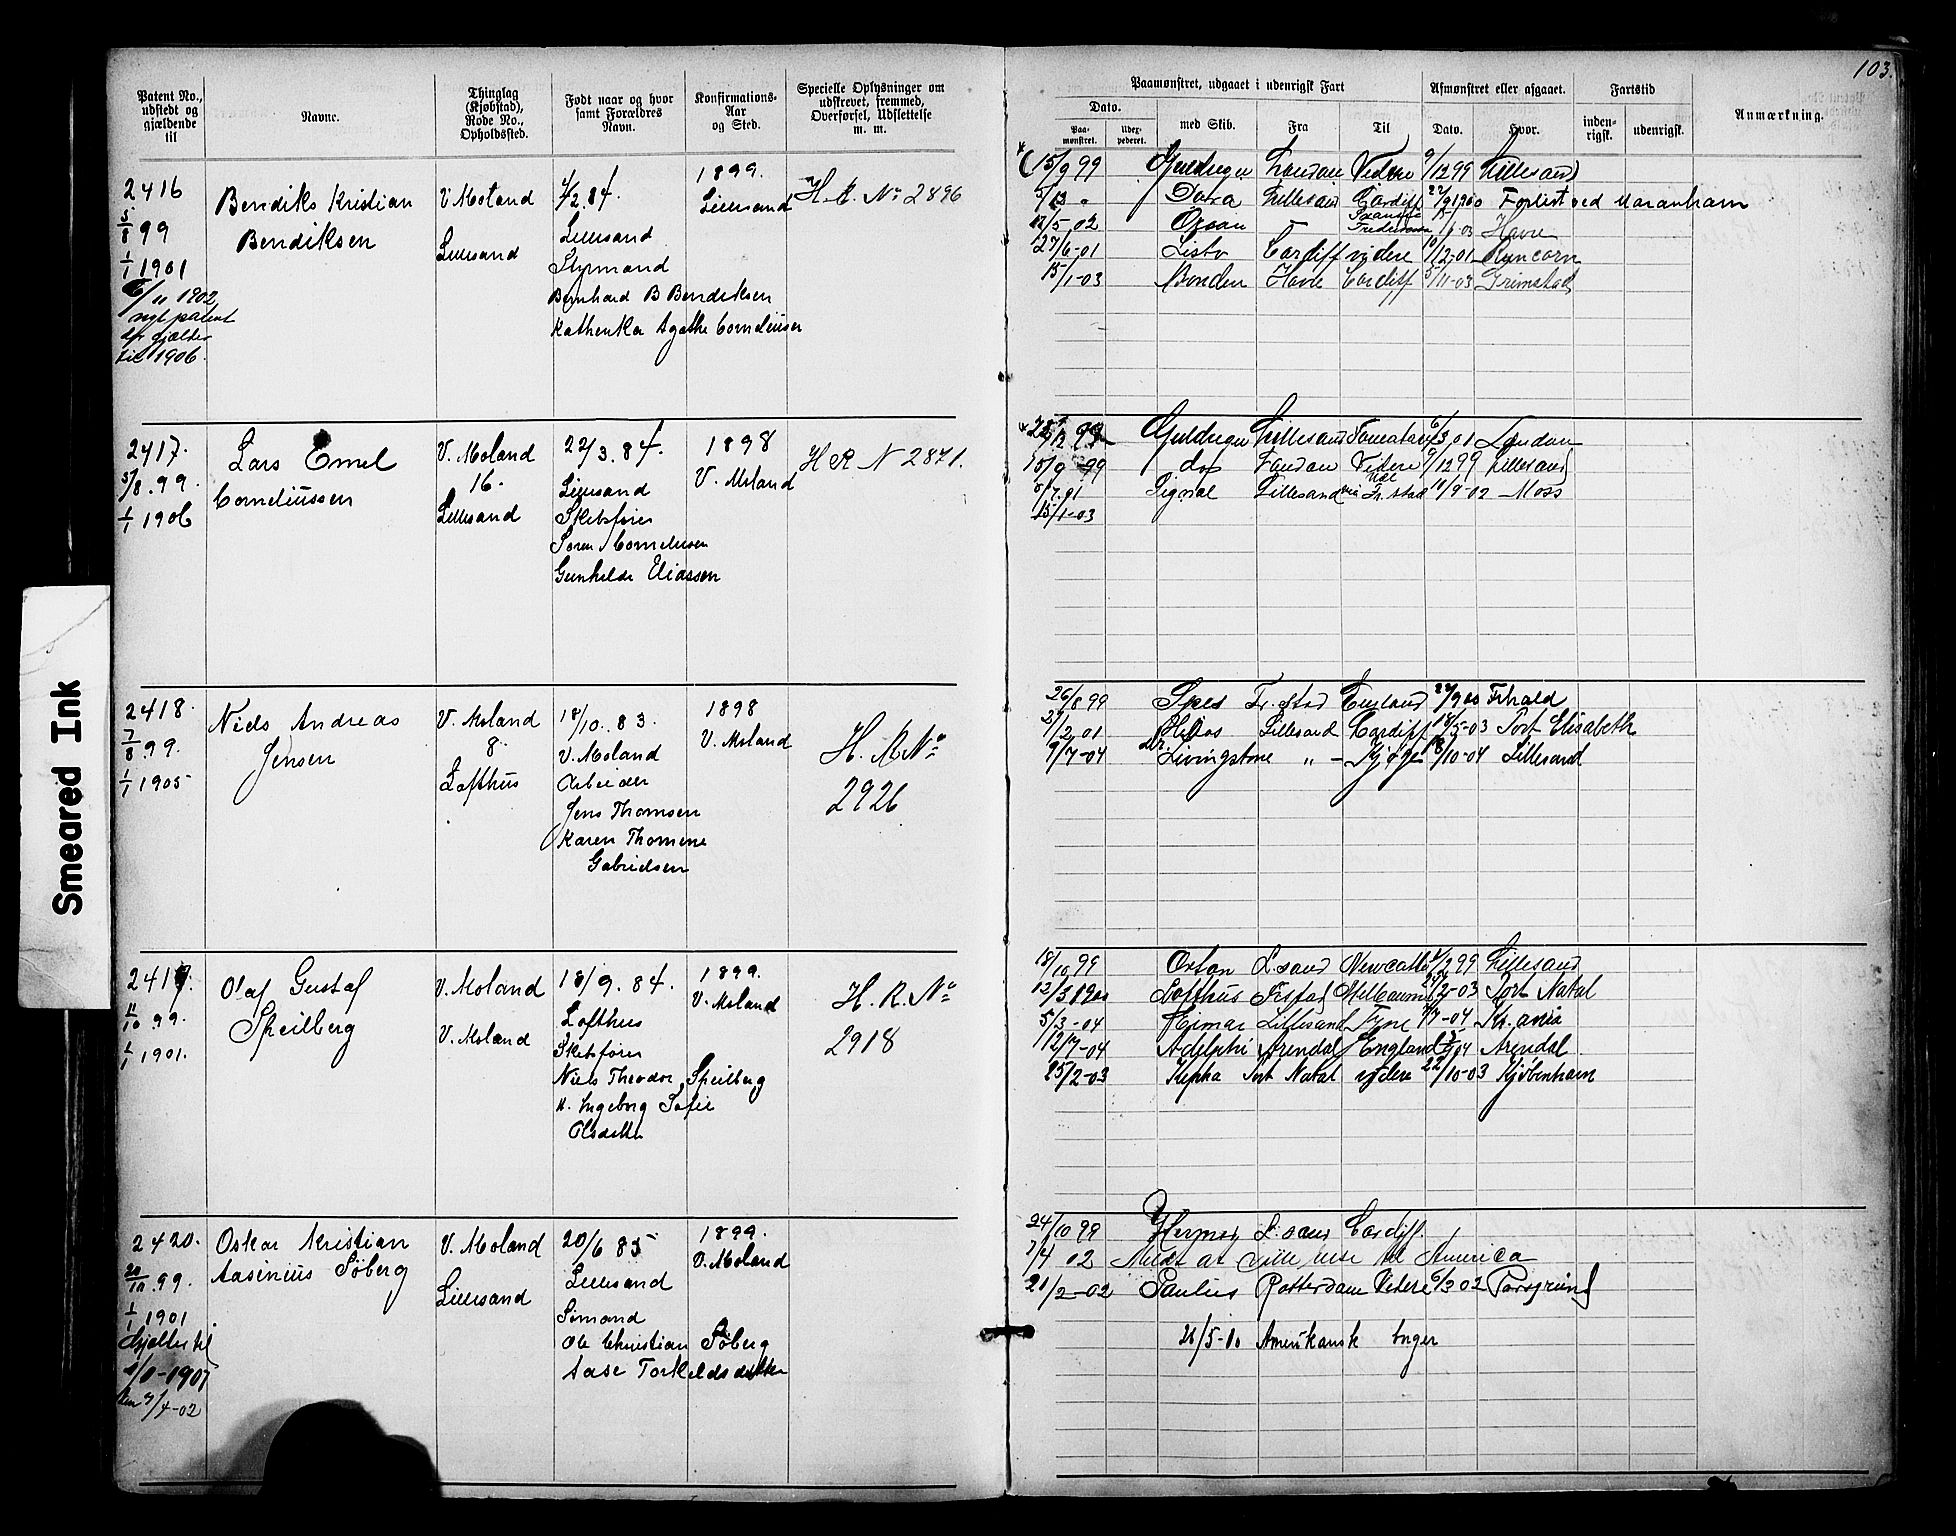 103.
Patent No., udstedt og gjældende til
Navne.
Thinglag (Kjøbstad), Rode No., Opholdssted.
Født naar og hvor samt Forældres Navn.
Konfirmations-Aar og Sted.
Specielle Oplysninger om udskrevet, fremmed, Overførsel, Udslettelse m. m.
Paamønstret, udgaaet i udenrigsk Fart
Dato.
Paamønstret.
Udexpederet.
med Skib.
Fra
Til
Afmønstret eller afgaaet.
Dato.
Hvor.
Fartstid
indenrigsk.
udenrigsk.
Anmærkning.
2416
5/8 99
1/1 1901
6/11 1902
nyt patent
til 1906.
Bendiks Kristian
Bendiksen
V. Moland
Lillesand
4/2.84.
Lillesand
Styrmand
Bernhard B Bendiksen
Kathenka Agathe Corneliusen
1899.
Lillesand
H. R. No 2896
15/9 99 Guldregn London Videre 9/12 99 Lillesand
Dora Lillesand Cardiff 1900 Forlist ved Maranham
/5-02 Havre
27/6-01 Lista Cardiff videre 10/12-01 Runcorn
15/1-03 Bonden Havre Cardiff 5/11-03 Grimstad
2417.
5/8.99.
1/1 1906
Lars Emil
Corneliussen
V. Moland
16.
Lillesand
22/3.84.
Lillesand
Skibsfører
Søren Corneliusen
Gunhilde Eliassen
1898
V. Moland
H R N 2871.
Guldregn Lillesand 6/3 01 London
15/9 99 do London Videre 9/12 99 Lillesand
8/7.01 Signal Lillesand via Fr.stad 11/9-02 Moss
15/1-03
2418.
7/8 99.
1/1 1905
Niels Andreas
Jensen
V. Moland
8.
Lofthus
18/10.83.
V. Moland
Arbeider
Jens Thomsen
Karen Thomine
Gabrielsen
1898
V. Moland
H. R. No
2926
26/8 99 Spes Fr.stad England 27/9 00 Frhald
27/2 01 Helios Lillesand Cardiff 18/5-03 Port Elisabeth
9/7-04 Livingstone " - Kjøge 8/10-04 Lillesand
2419.
11/10 99.
1/1 1901.
Olaf Gustaf
Speilberg
V. Moland
V. Moland
18/9.84.
Lofthus
Skibsfører
Niels Theodor Speilberg
H. Ingeborg Sofie
Olsdatter
1899.
V. Moland
H. R. No
2918
18/10 99 Orton L.sand Newcastle /2 99 Lillesand
12/3 1900 Lofthus Frstad Melbourne /2-03 Port Natal
5/3-04 Heimar Lillesand Tyne 7/7-04 Kr.ania
12/7-04 Adelphi Arendal England 5/9 04 Arendal
25/2-03 Kepha Port Natal videre 22/10-03 Kjøbenhavn
2420.
20/10 99.
1/1 1901.
Gjælder til
1/1-1907
den 7/4-02
Oskar Kristian
Aasinius Søberg
V. Moland
Lillesand
20/6 85
Lillesand
Sømand
Ole Christian Søberg
Aase Torkildsdatter
1899.
V. Moland
24/10 99 Hermod L.sand Cardiff.
7/4 02 Meldt at ville reise til America
21/2-02 Paulus Rotterdam Videre 6/3 02 Porsgrund
26/5-10 Amerikansk borger
Smeared Ink